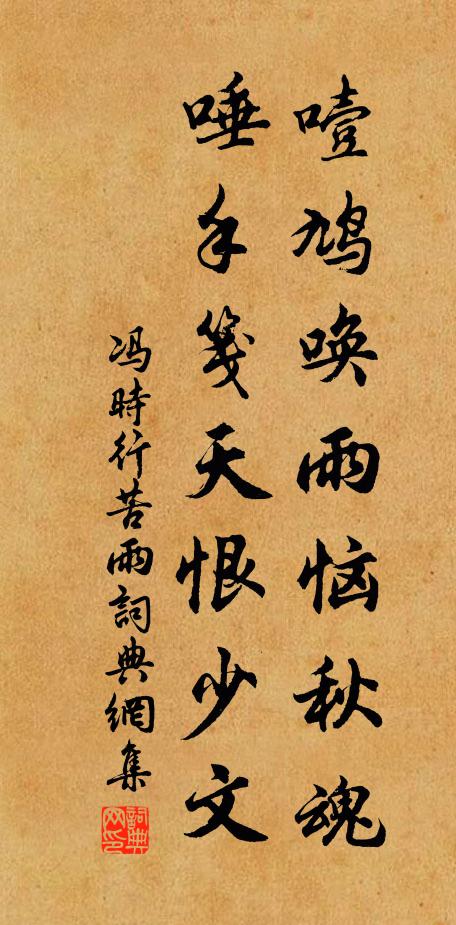 噎鸠唤雨恼秋魂
唾手笺天恨少文
冯時行苦雨詞典網集
詞典网印